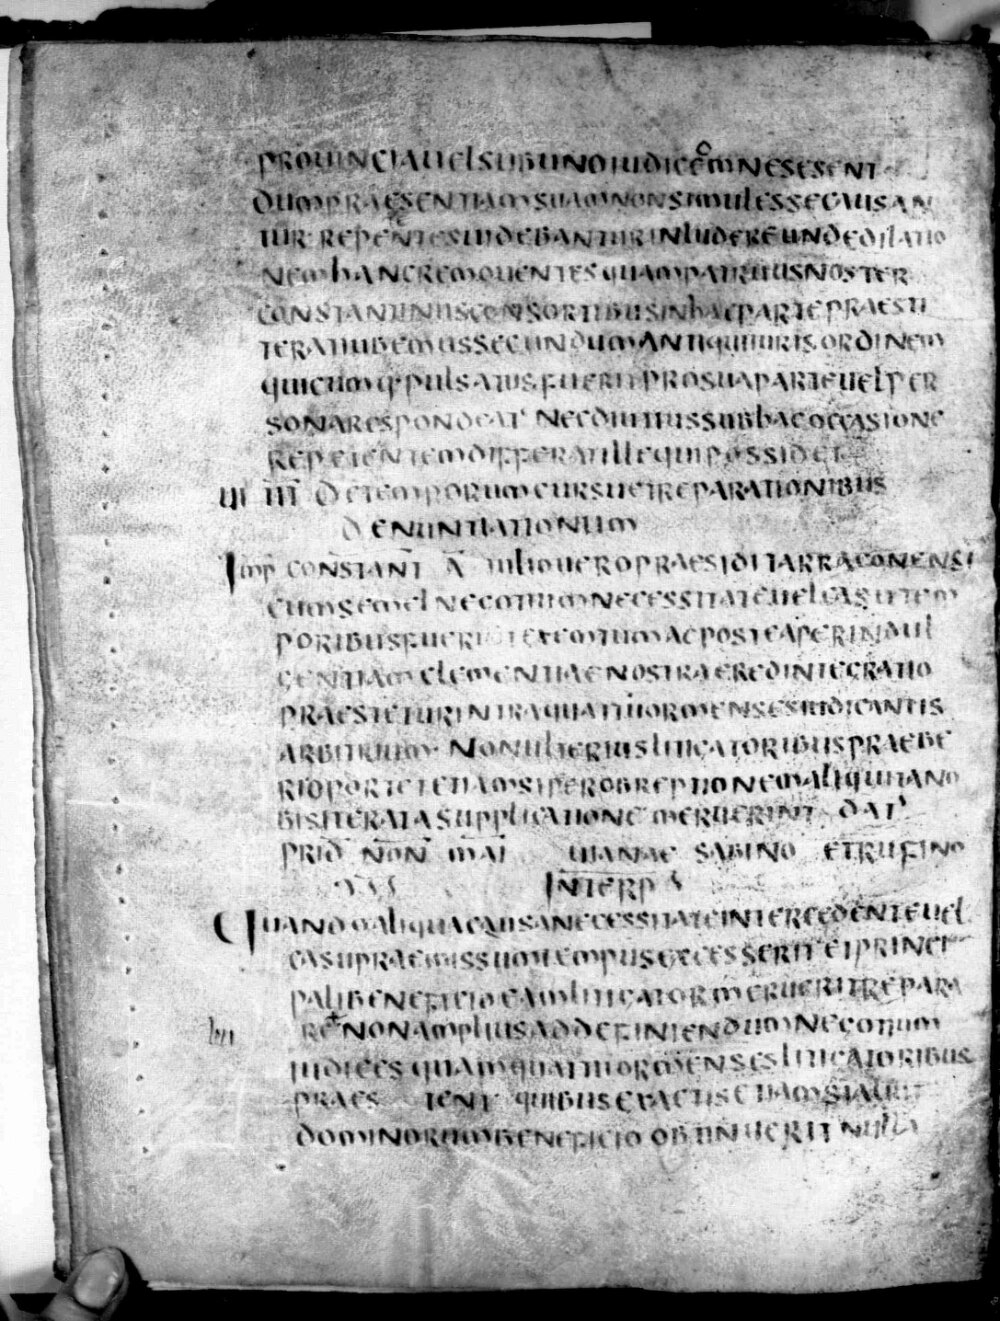 PROUINCIAUELSUBUNOIUDICEOMNESESENT
DUMPRAESENTIAMSUAMNONSIMULESSECAUSAN
TUR REPENTESUIDEBANTURINLUDEREUNDEDILATIO
NEMHANCREMOUENTESQUAMPATRUUSNOSTER
CONSTANTINUSCONSORTIBUSINHACPARTEPRAESTI
TERATIUBEMUSSECUNDUMANTIQUIIURISORDINEM
QUICUMQPULSATUSFUERITPROSUAPARTEUELPER
SONARESPONDEAT NECDIUTIUSSUBHACOCCASIONE
REPETENTEMDIFFERATILLEQUIPOSSIDET
UI IIII DETEMPORUMCURSUETREPARATIONIBUS
DENUNTIATIONUM
IMP CONSTANT A IULIOUEROPRAESIDITARRACONENSI
CUMSEMELNECOTIUMNECESSITATEUELCASUTEM
PORIBUSFUERITEXEMTUMACPOSTEAPERINDUL
GENTIAMCLEMENTIAENOSTRAEREDINTEGRATIO
PRAESTETURINTRAQUATTUORMENSESIUDICANTIS
ARBITRIUM NONULTERIUSLITIGATORIBUSPRAEBE
RIOPORTETETIAMSIPEROBREPTIONEMALIQUITANO
BISITERATASUPPLICATIONEMERUERINT DAT
PRID NON MAI UIANAE SABINO ETRUFINO
INTERP
QUANDOALIQUACAUSANECESSITATEINTERCEDENTEUEL
CASUPRAEMISSUMTEMPUSEXCESSERITETPRINCI
PALIBENEFICIOEAMLITIGATORMERUERITREPARA
RE NONAMPLIUSADDEFINIENDUMNECOTIUM
IUDICES QUAMQUATTUORMENSESLITIGATORIBUS
PRAES TENT QUIBUSEXACTISETIAMSIALIUT
DOMINORUMBENEFICIOOBTINUERIT NULLA